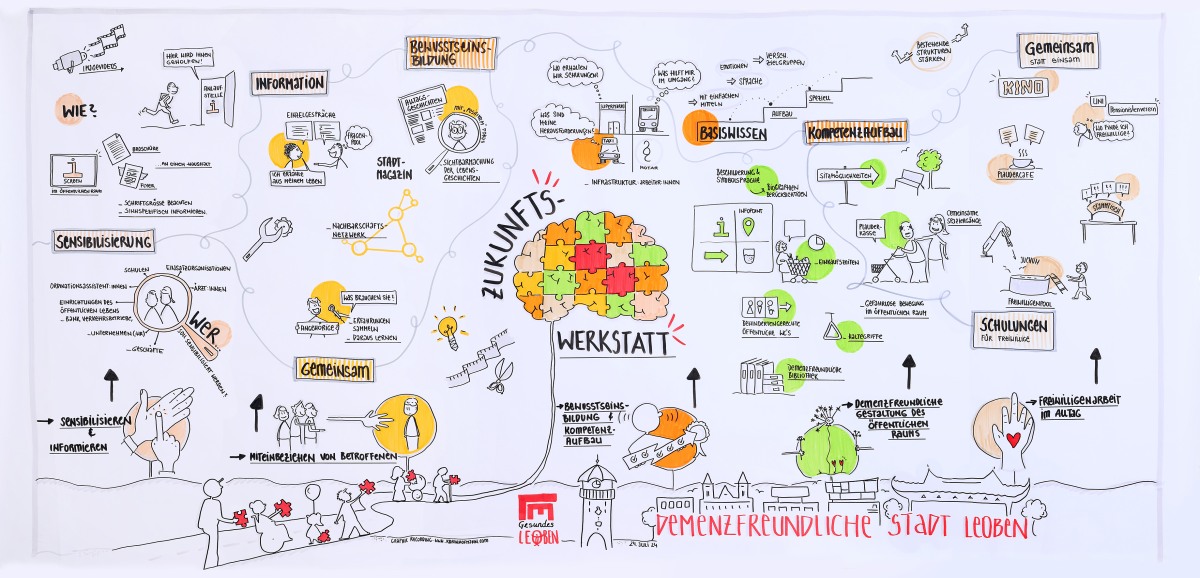 IMAGEVIDEOS
HIER WIRD IHNEN
GEHOLFEN!
ANLAUF-
STELLE
i
WIE?
INFORMATION
i
SCREEN
IM ÖFFENTLICHEN RAUM
BROSCHÜRE
AN EINEN HAUSHALT
FOLDER
SCHRIFTGRÖSSE BEACHTEN
SINNSPEZIFISCH INFORMIEREN
SENSIBILISIERUNG
SCHULEN
EINSATZORGANISATIONEN
ORDINATIONSASSISTENT:INNEN
ÄRZT:INNEN
EINRICHTUNGEN DES
ÖFFENTLICHEN LEBENS
BAHN, VERKEHRSBETRIEBE,
UNTERNEHMEN (HR)
GESCHÄFTE
WER
SENSIBILISIERT WERDEN?
BEWUSSTSEINS-
BILDUNG
EINZELGESPRÄCHE
FRAGEN-
POOL
ICH ERZÄHLE
AUS MEINEM LEBEN
ALLTAGS-
GESCHICHTEN
STADT-
MAGAZIN
SICHTBARMACHUNG
DER LEBENS-
GESCHICHTEN
NACHBARSCHAFTS-
NETZWERK
WAS BRAUCHEN SIE?
ANGEHÖRIGE
ERFAHRUNGEN
SAMMELN
DARAUS LERNEN
GEMEINSAM
WO ERHALTEN
WIR SCHULUNGEN?
WAS HILFT MIR
IM UMGANG?
WAS SIND
MEINE
HERAUSFORDERUNGEN?
SUPERMARKT
TAXI
NOTAR
INFRASTRUKTUR ARBEITER:INNEN
EMOTIONEN
VERSCH.
ZIELGRUPPEN
SPRACHE
MIT EINFACHEN
MITTELN
BASISWISSEN
AUFBAU
SPEZIELL
KOMPETENZAUFBAU
BESTEHENDE
STRUKTUREN
STÄRKEN
GEMEINSAM
STATT EINSAM
KINO
UNI
PENSIONISTENVEREIN
WO FINDE ICH
FREIWILLIGE?
PLAUDERCAFÉ
STAMMTISCH
BESCHILDERUNG &
SYMBOLSPRACHE
BIOGRAPHIEN
BERÜCKSICHTIGEN
SITZMÖGLICHKEITEN
INFOPOINT
i
EINKAUFSZEITEN
PLAUDER-
KASSE
GEMEINSAME
SPAZIERGÄNGE
GEFAHRLOSE BEWEGUNG
IM ÖFFENTLICHEN RAUM
BEHINDERTENGERECHTE
ÖFFENTLICHE WC'S
HALTEGRIFFE
DEMENZFREUNDLICHE
BIBLIOTHEK
FREIWILLIGENPOOL
SCHULUNGEN
FÜR FREIWILLIGE
ZUKUNFTS-
WERKSTATT
SENSIBILISIEREN
&
INFORMIEREN
MITEINBEZIEHEN VON BETROFFENEN
BEWUSSTSEINS-
BILDUNG &
KOMPETENZ-
AUFBAU
DEMENZFREUNDLICHE
GESTALTUNG DES
ÖFFENTLICHEN
RAUMS
FREIWILLIGENARBEIT
IM ALLTAG
Gesundes
LEOBEN
DEMENZFREUNDLICHE STADT LEOBEN
24. JULI 24